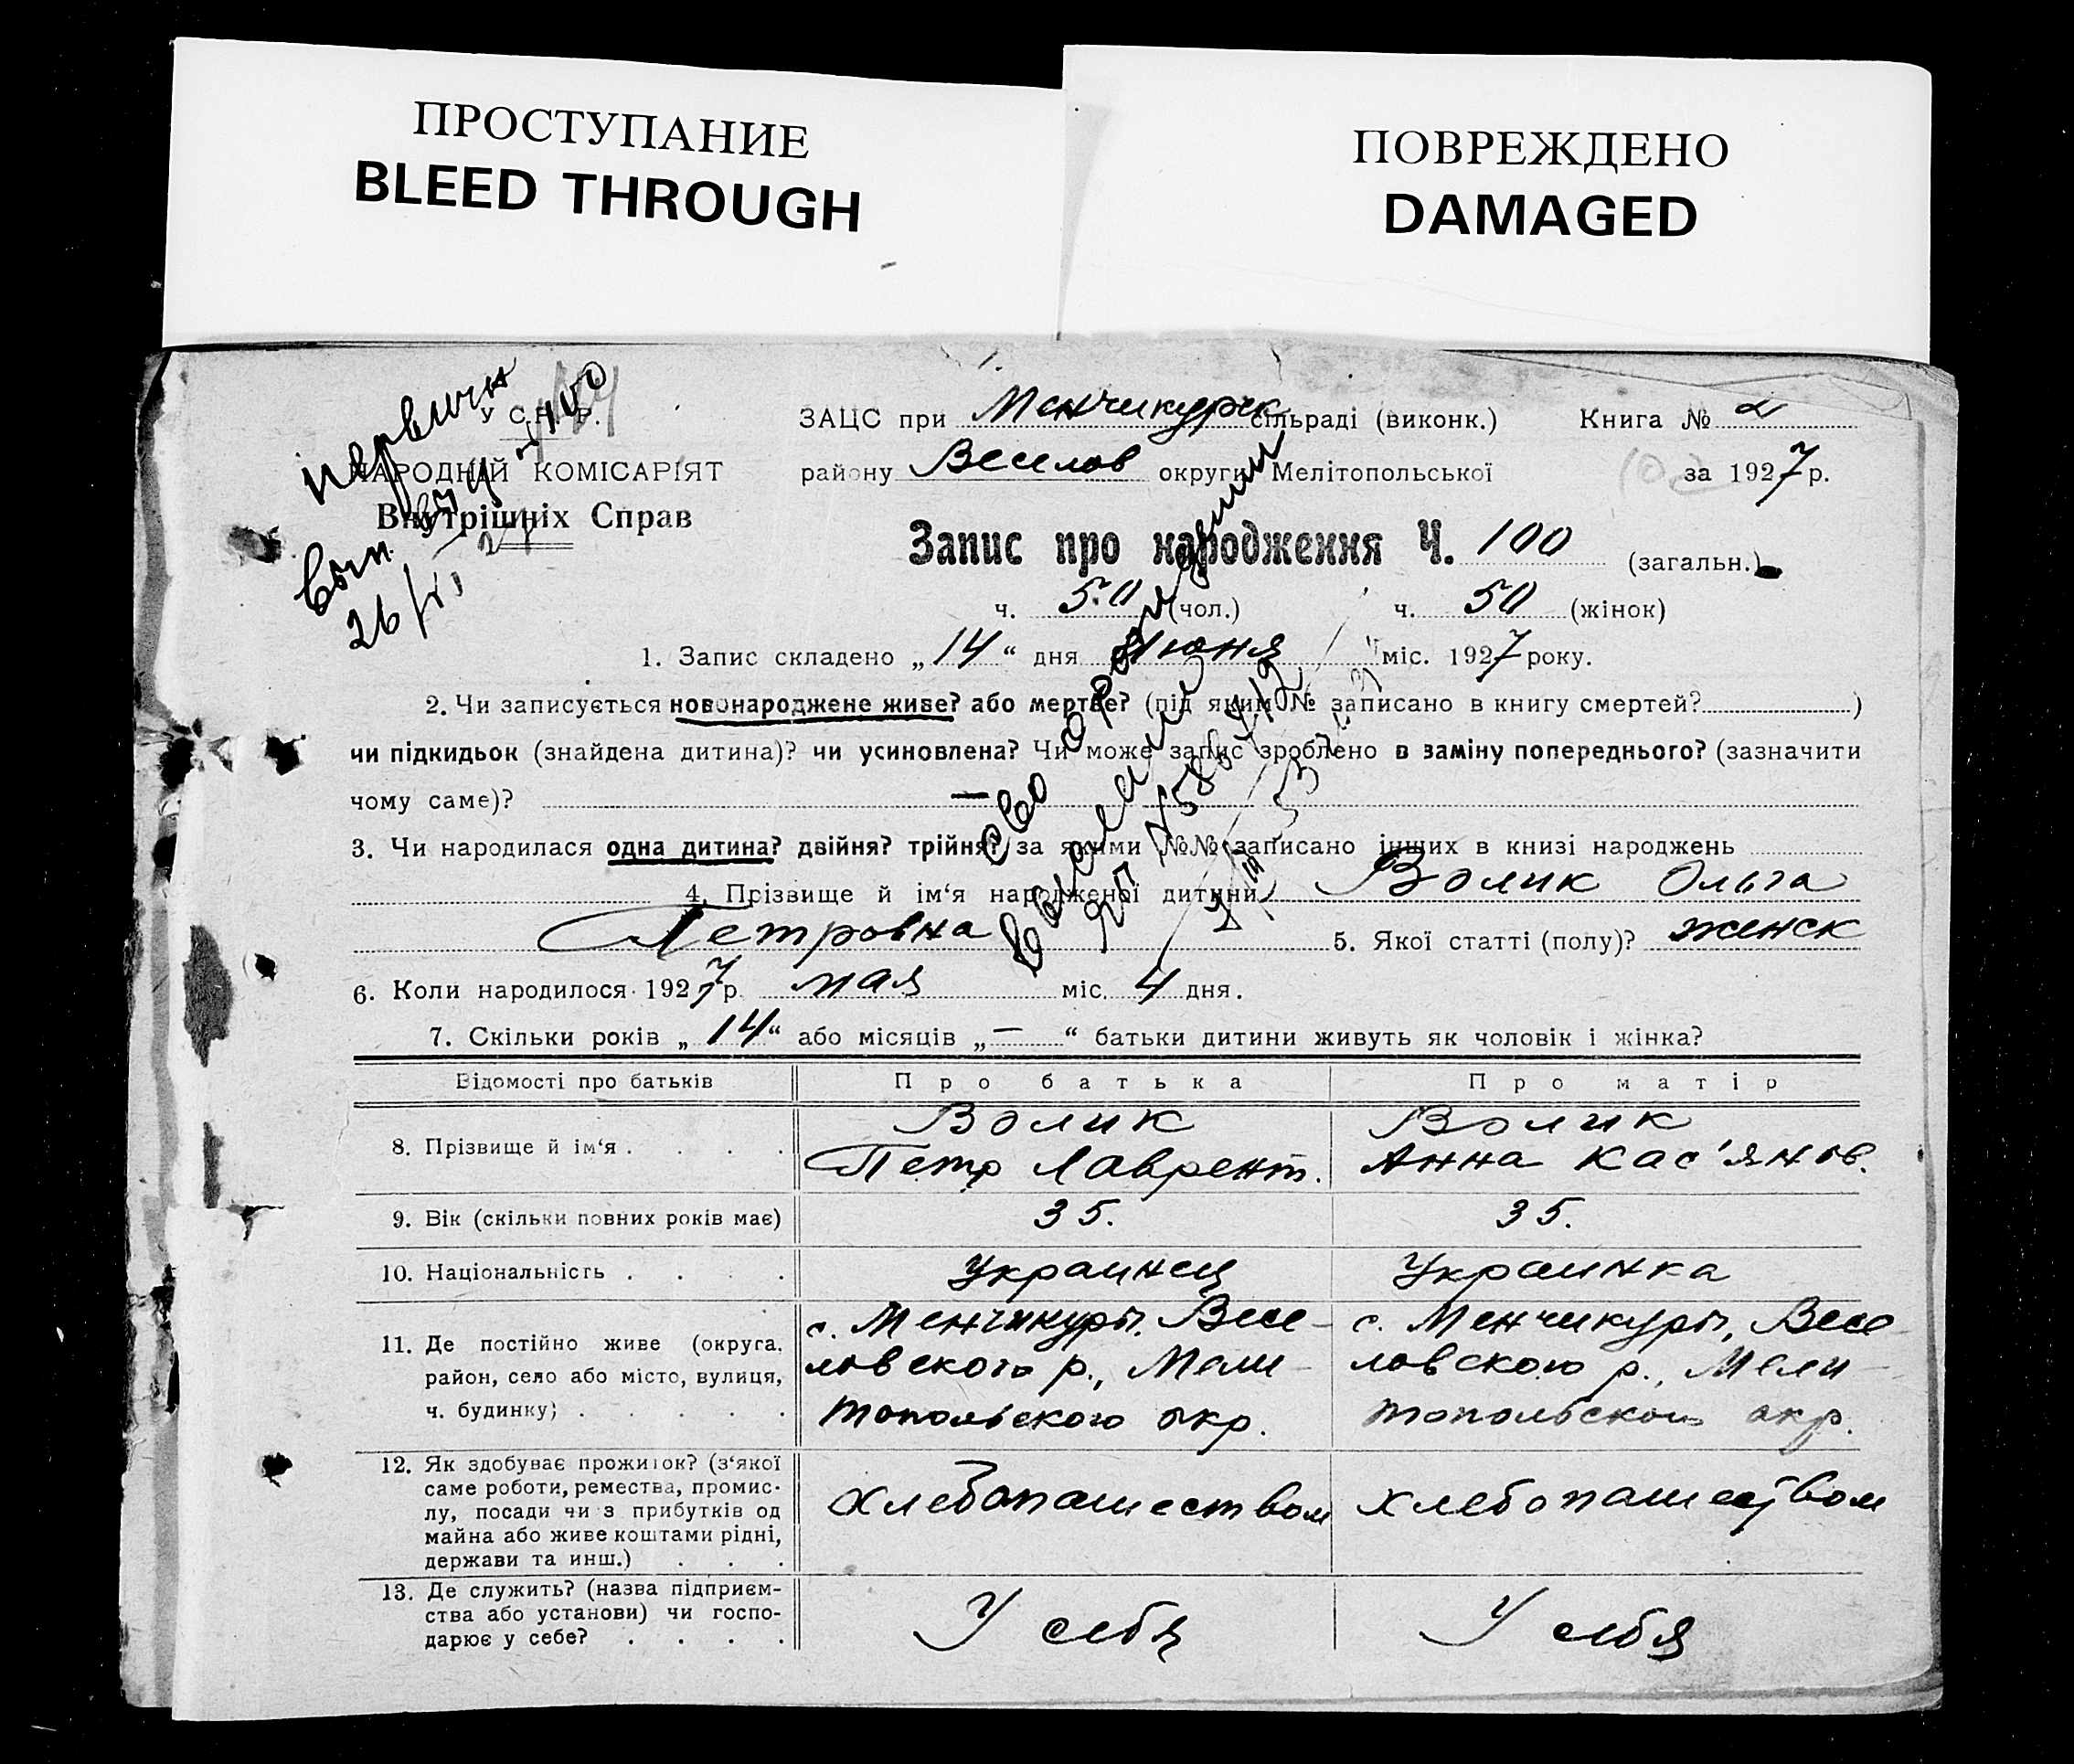 ПРОСТУПАНИЕ
BLEED THROUGH
ПОВРЕЖДЕНО
DAMAGED
У С.Р.Р.
НАРОДНІЙ КОМІСАРІЯТ
Внутрішніх Справ
ЗАЦС при Менчикурск сільраді (виконк.) Книга № 2
району Веселов округи Мелітопольської за 1927 р.
Запис про народження Ч. 100 (загальн.)
ч. 50 (чол.) ч. 50 (жінок)
1. Запис складено „14“ дня Июня міс. 1927 року.
2. Чи записується новонароджене живе? або мертве? (під яким № записано в книгу смертей? )
чи підкидьок (знайдена дитина)? чи усиновлена? Чи може запис зроблено в заміну попереднього? (зазначити
чому саме)? —
3. Чи народилася одна дитина? двійня? трійня? за якими №№ записано інших в книзі народжень
4. Прізвище й ім‘я народженої дитини Волик Ольга
Петровна 5. Якої статті (полу)? женск
6. Коли народилось 1927 р. мая міс. 4 дня.
7. Скільки років „14“ або місяців „—“ батьки дитини живуть як чоловік і жінка?
Відомості про батьків Про батька Про матір
8. Прізвище й ім‘я . . . . Волик Волик
Петр Лаврент. Анна Кас'янов.
9. Вік (скільки повних років має) 35. 35.
10. Національність . . . . Украинец Украинка
11. Де постійно живе (округа, район, село або місто, вулиця, ч. будинку) . . . . .
с. Менчикуры, Весе-
ловского р., Мели-
топольского окр.
с. Менчикуры, Весе-
ловского р., Мели-
топольского окр.
12. Як здобуває прожиток? (з‘якої
саме роботи, ремества, промис-
лу, посади чи з прибутків од
майна або живе коштами рідні,
держави та инш.) . . .
хлебопашеством хлебопашеством
13. Де служить? (назва підприєм-
ства або установи) чи госпо-
дарює у себе? . . . .
У себя У себя